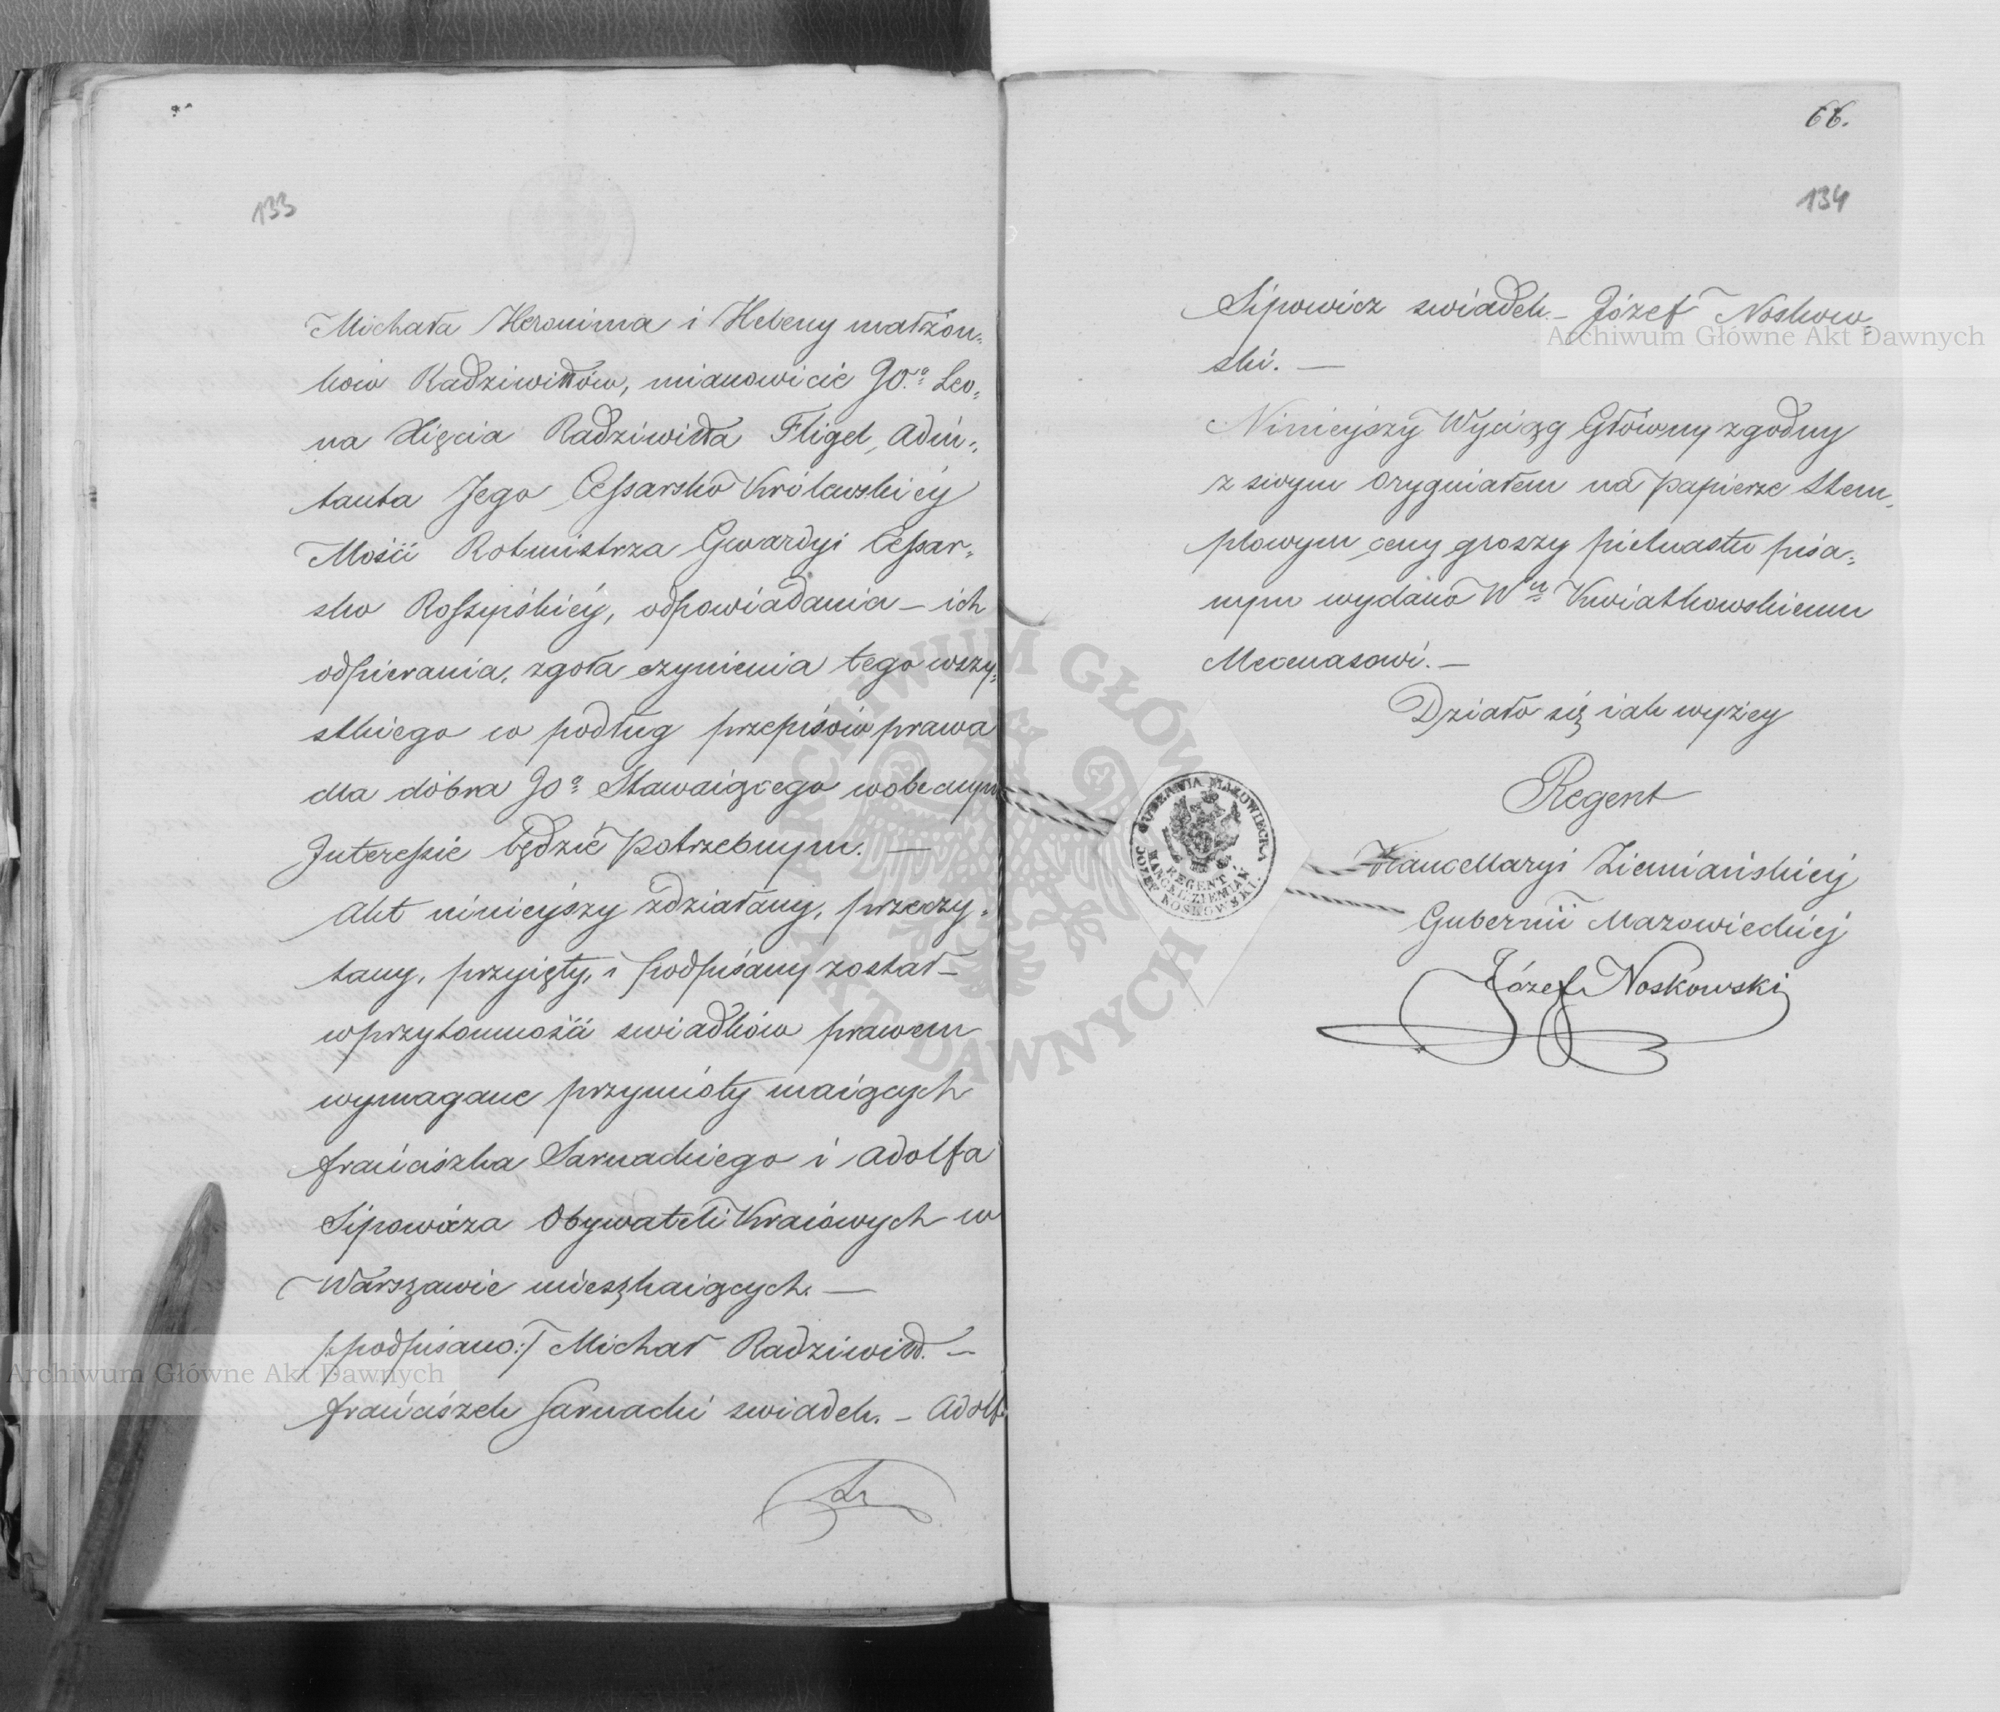 133
Michała Heronima i Heleny małżon-
ków Radziwiłłów, mianowicie JO.º Leo-
na Xięcia Radziwiłła Fligel Adiu-
tanta Jego Cessarsko Królewskiéy
Mości Rotmistrza Gwardyi Cessar-
sko Rossyiskiéy, odpowiadania - ich
odpierania, zgoła czynienia tego wszy-
stkiego co podług przepisów prawa
dla dobra JOº Stawaiącego wobecnym
Interessie będzie potrzebnym. —
Akt ninieyszy zdziałany, przeczy-
tany, przyięty, i podpisany został -
wprzytomności swiadków prawem
wymagane przymioty maiących
franciszka Sarnackiego i Adolfa
Sipowicza Obywateli Kraiowych w
Warszawie mieszkaiących. —
/:podpisano:/ Michał Radziwiłł. -
franciszek Sarnacki swiadek. - Adolf
66.
134
Sipowicz swiadek. - Józef Noskow-
ski. —
Ninieyszy Wyciąg Główny zgodny
z swym oryginałem na papierze stem-
plowym ceny groszy pietnastu pisa-
nym wydano Wu Kwiatkowskiemu
Mecenasowi. —
Działo się iak wyżey
Regent
Kancellaryi Ziemiańskiéy
Gubernii Mazowieckiéj
Józef Noskowski
GUBERNIA MAZOWIECKA
JOZEF NOSKOWSKI
REGENT
KANCEL: ZIEMIAN:
ARCHIWUM GŁÓWNE
AKT DAWNYCH
Archiwum Główne Akt Dawnych
Archiwum Główne Akt Dawnych